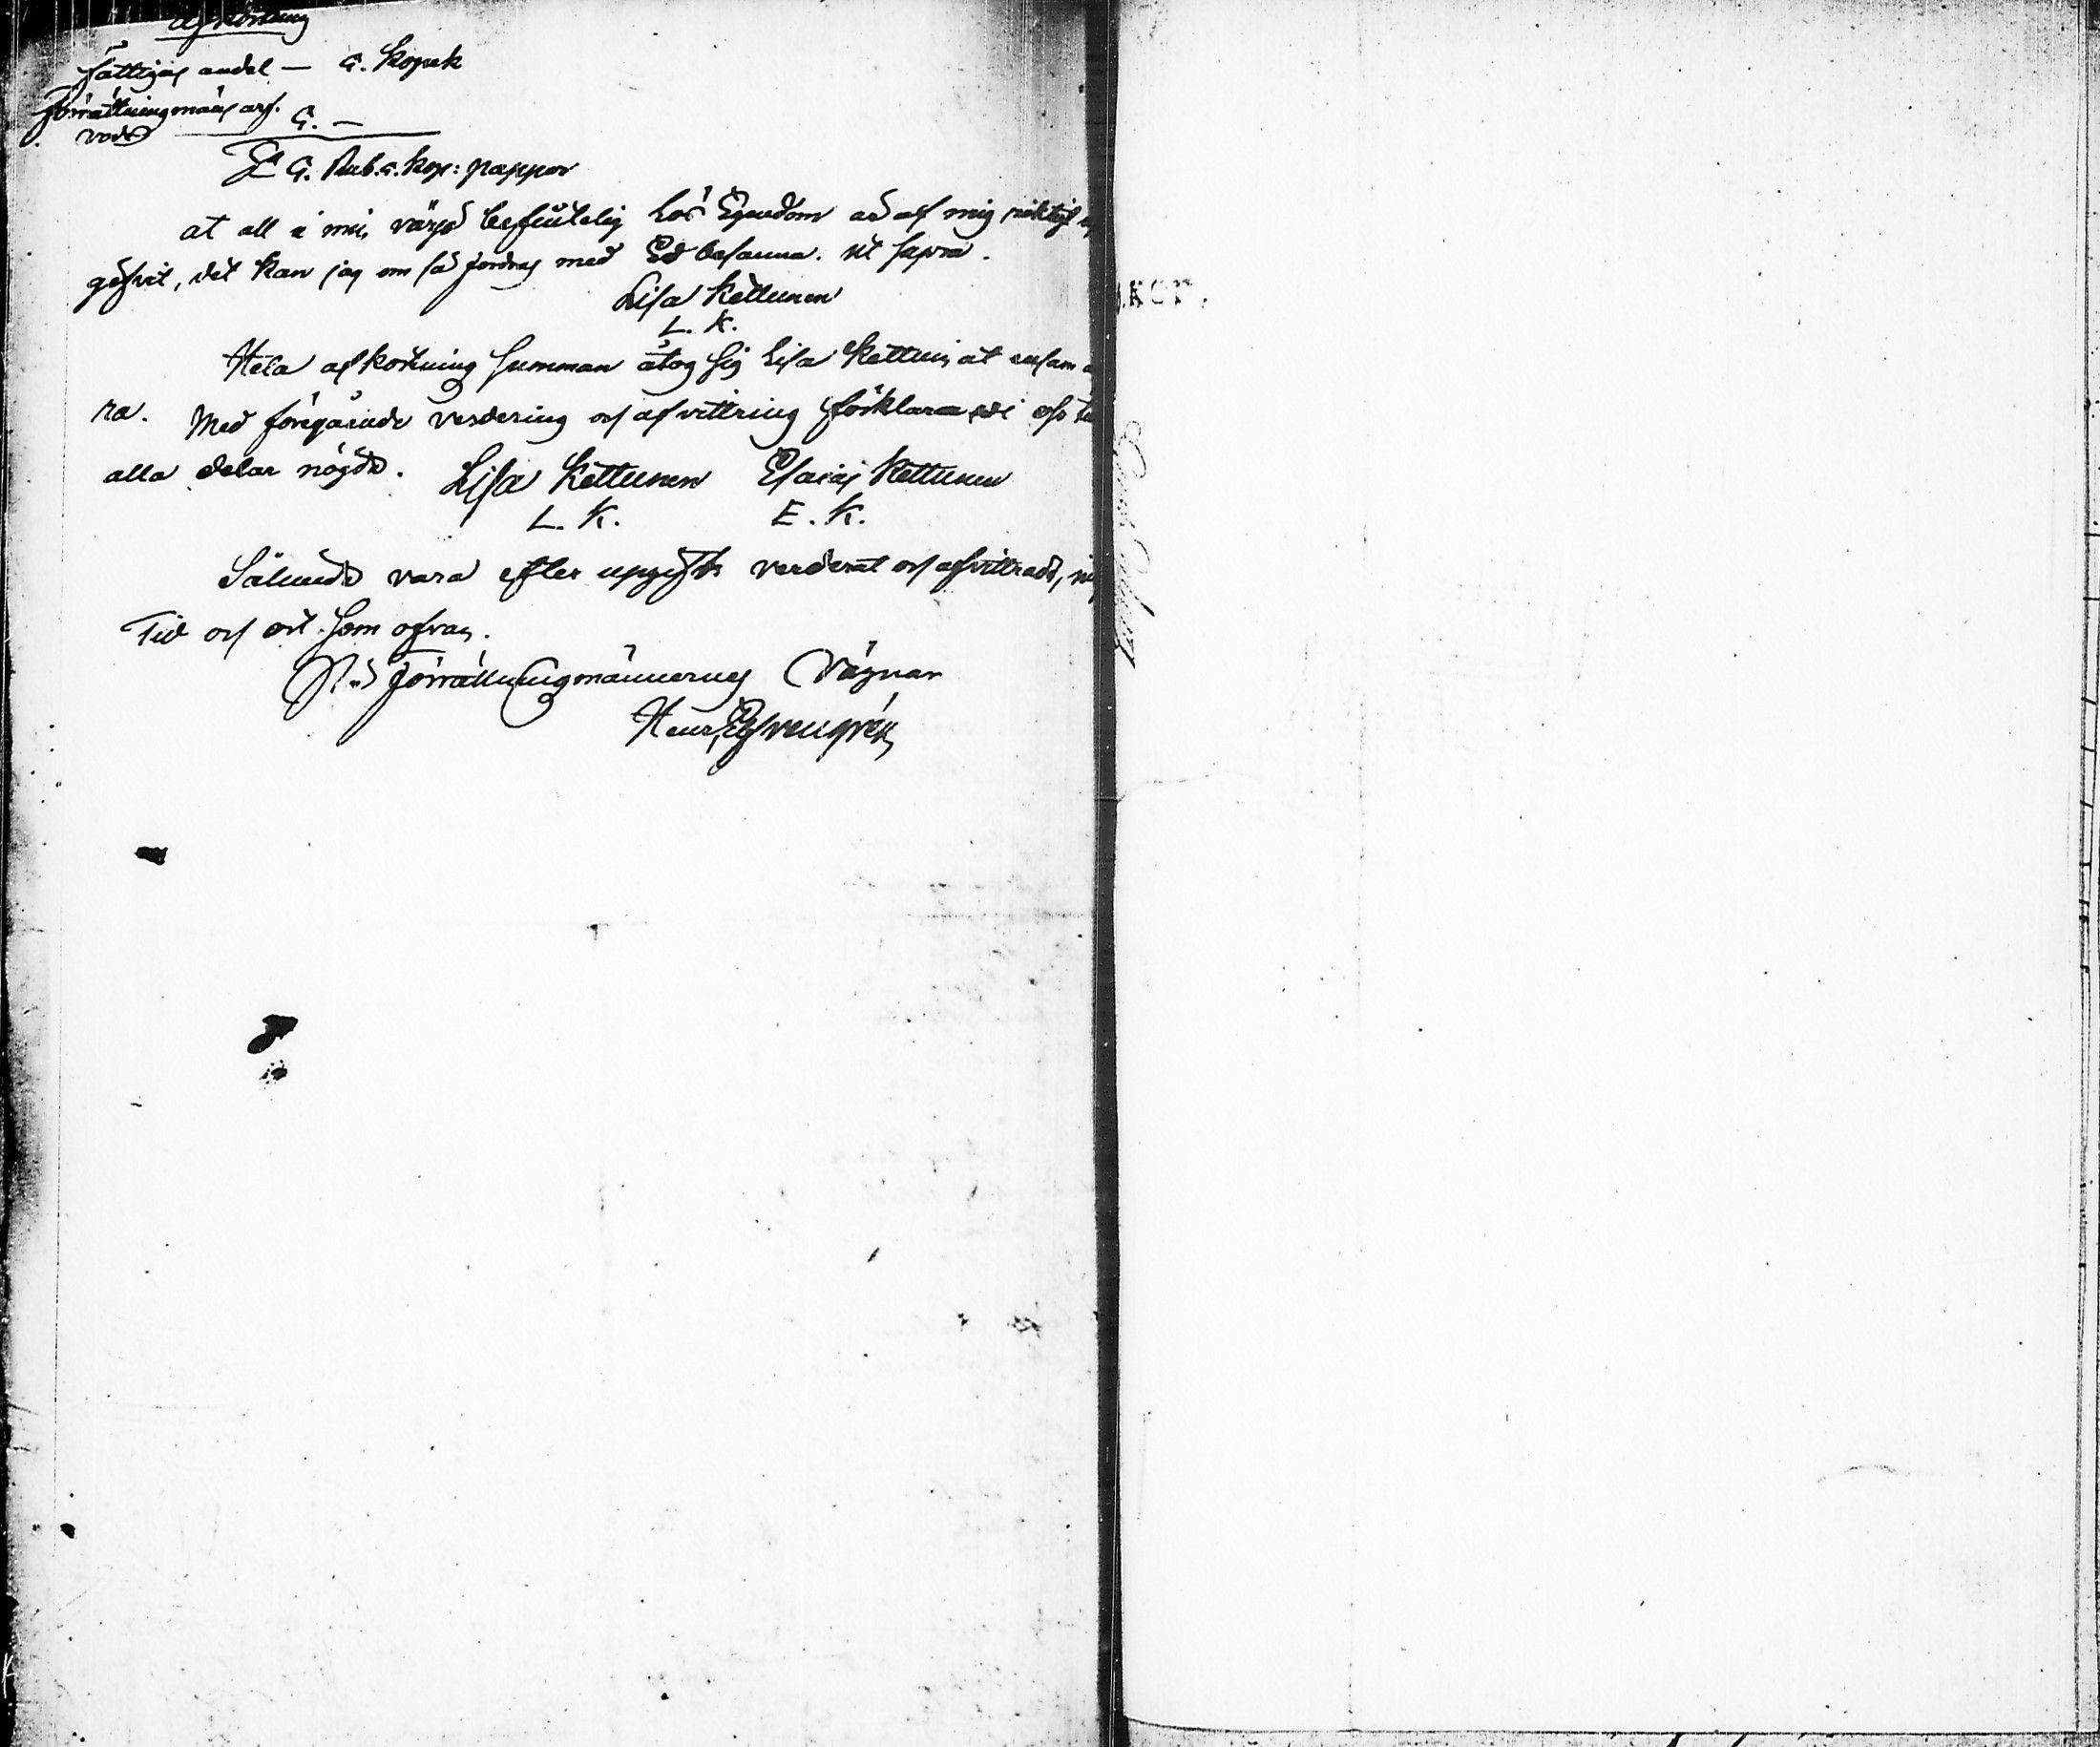 Afkortning
fattigas andel — 6. Kopek
Förrättningmäns arf.
vode 6. —
Sa 6. Rub. 6. Kop: papper
at all i min värjo befintelig Lös Egendom är af mig riktigt
gifvit, det kan jag om så fordras med Ed besanna. ut supra.
Lisa Kettunen
L. K.
Hela afkortning Summan åtog sig Lisa Kettuin at ensam
ra. Med föregående verdering och afvittring förklara vi oss
alla delar nögda. Lisa Kettunen Esaias Kettunen
L. K. E. K.
Sålunda vara efter upgift verderat och afvittradt,
Tid och ort som ofvan.
På Förrättningmännernes Vägnar
Henr,
.KOP.